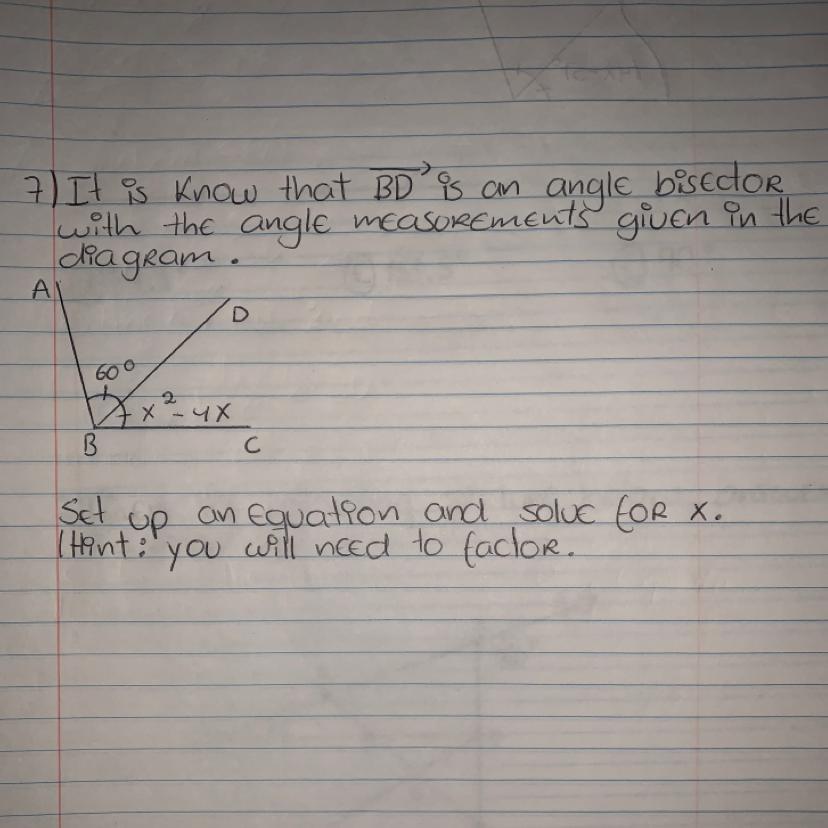 7) It is know that BD is an angle bisector
with the angle measurements given in the
diagram.
A
D
60°
x² - 4x
B
C
Set up an Equation and solve for x.
(Hint: you will need to factor.